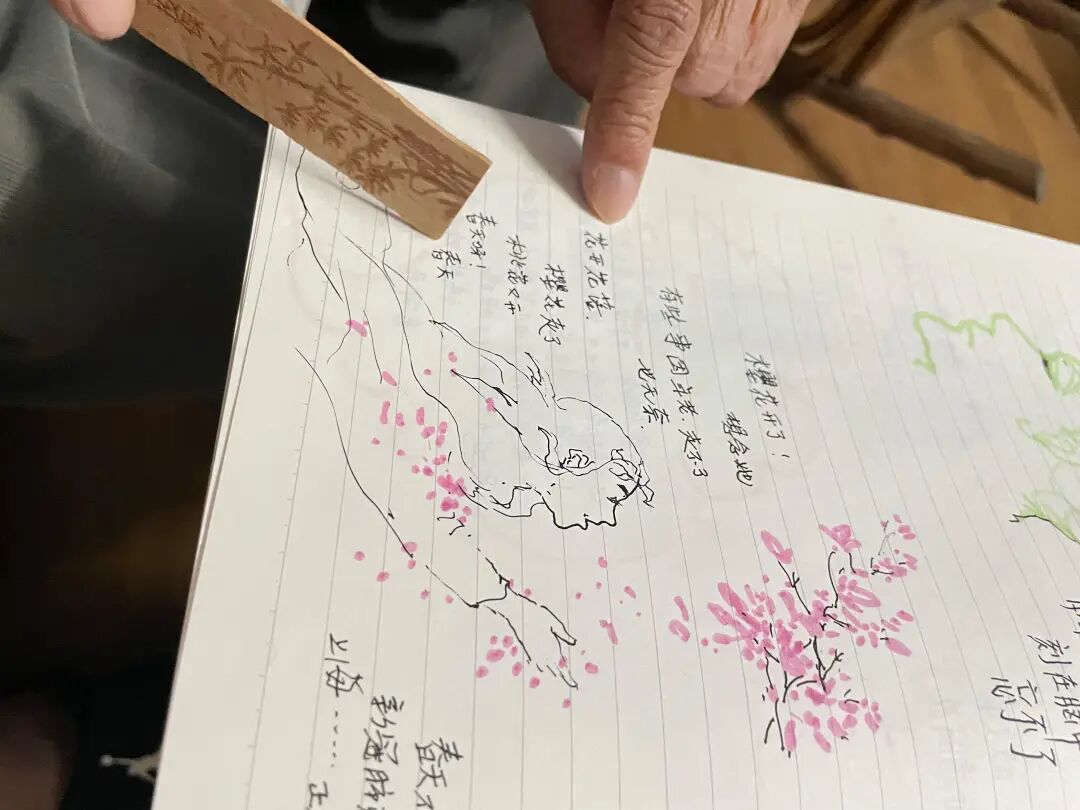 刻在脑中
忘不了
樱花开了！
想念她
有些事因年老，走不了
也无奈。
花开花落。
樱花走了
桃花又开
春天呀！
春天
春天不
新冠肺
上海……正